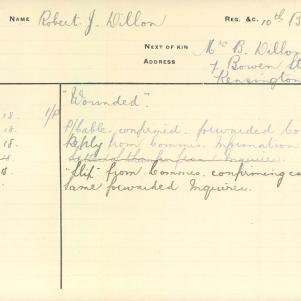 NAME Robert J. Dillon REG. &C. 10th B
NEXT OF KIN Mrs B. Dillon
ADDRESS 7 Bowen St
Kensington
"Wounded".
18. P/Cable confirmed forwarded Com
18. Reply from Commis. Information
"Slip" from Commis. confirming ca
same forwarded Inquirer.